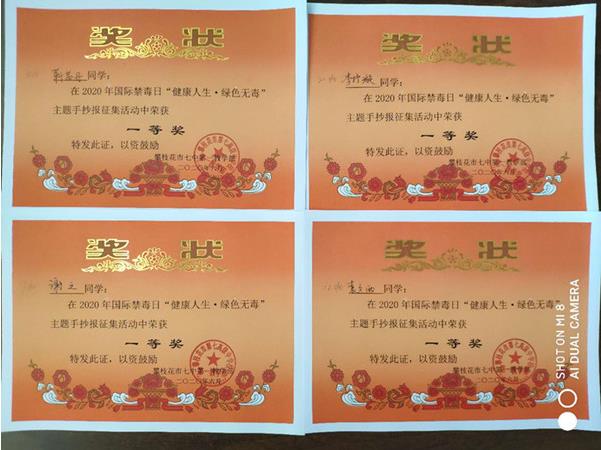 奖状
同学：
在2020年国际禁毒日“健康人生·绿色无毒”
主题手抄报征集活动中荣获
一等奖
特发此证，以资鼓励
攀枝花市七中第一教学部
二〇二〇年六月
奖状
同学：
在2020年国际禁毒日“健康人生·绿色无毒”
主题手抄报征集活动中荣获
一等奖
特发此证，以资鼓励
攀枝花市七中第一教学部
二〇二〇年六月
奖状
谢立 同学：
在2020年国际禁毒日“健康人生·绿色无毒”
主题手抄报征集活动中荣获
一等奖
特发此证，以资鼓励
攀枝花市七中第一教学部
二〇二〇年六月
奖状
同学：
在2020年国际禁毒日“健康人生·绿色无毒”
主题手抄报征集活动中荣获
一等奖
特发此证，以资鼓励
攀枝花市七中第一教学部
二〇二〇年六月
SHOT ON MI 8
AI DUAL CAMERA